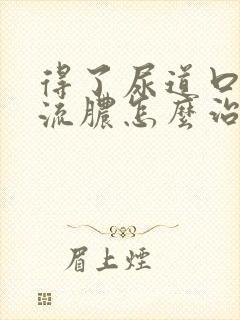 得了尿道口
流膿怎麼治
眉上煙